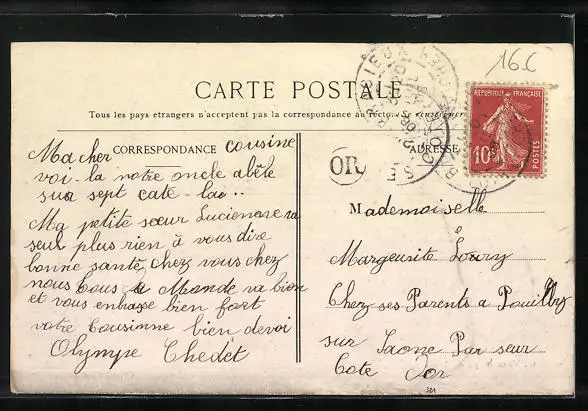 16 C
CARTE POSTALE
Tous les pays étrangers n'acceptent pas la correspondance au recto. Se renseigner
RÉPUBLIQUE FRANÇAISE
10c
POSTES
CORRESPONDANCE
ADRESSE
OR
Ma cher cousine
voi-la notre oncle abêle
sur sept cate-lai..
Ma petite sœur Lucienne va
seur plus rien à vous dire
bonne santé chez vous chez
nous tous le Monde va bien
et vous enbrasse bien fort
votre Cousinne bien devoi
Olympe Chedet
Mademoiselle
Margeurite Loury
Chez ses Parents a Pouilly
sur Saone Par seur
Cote Dor